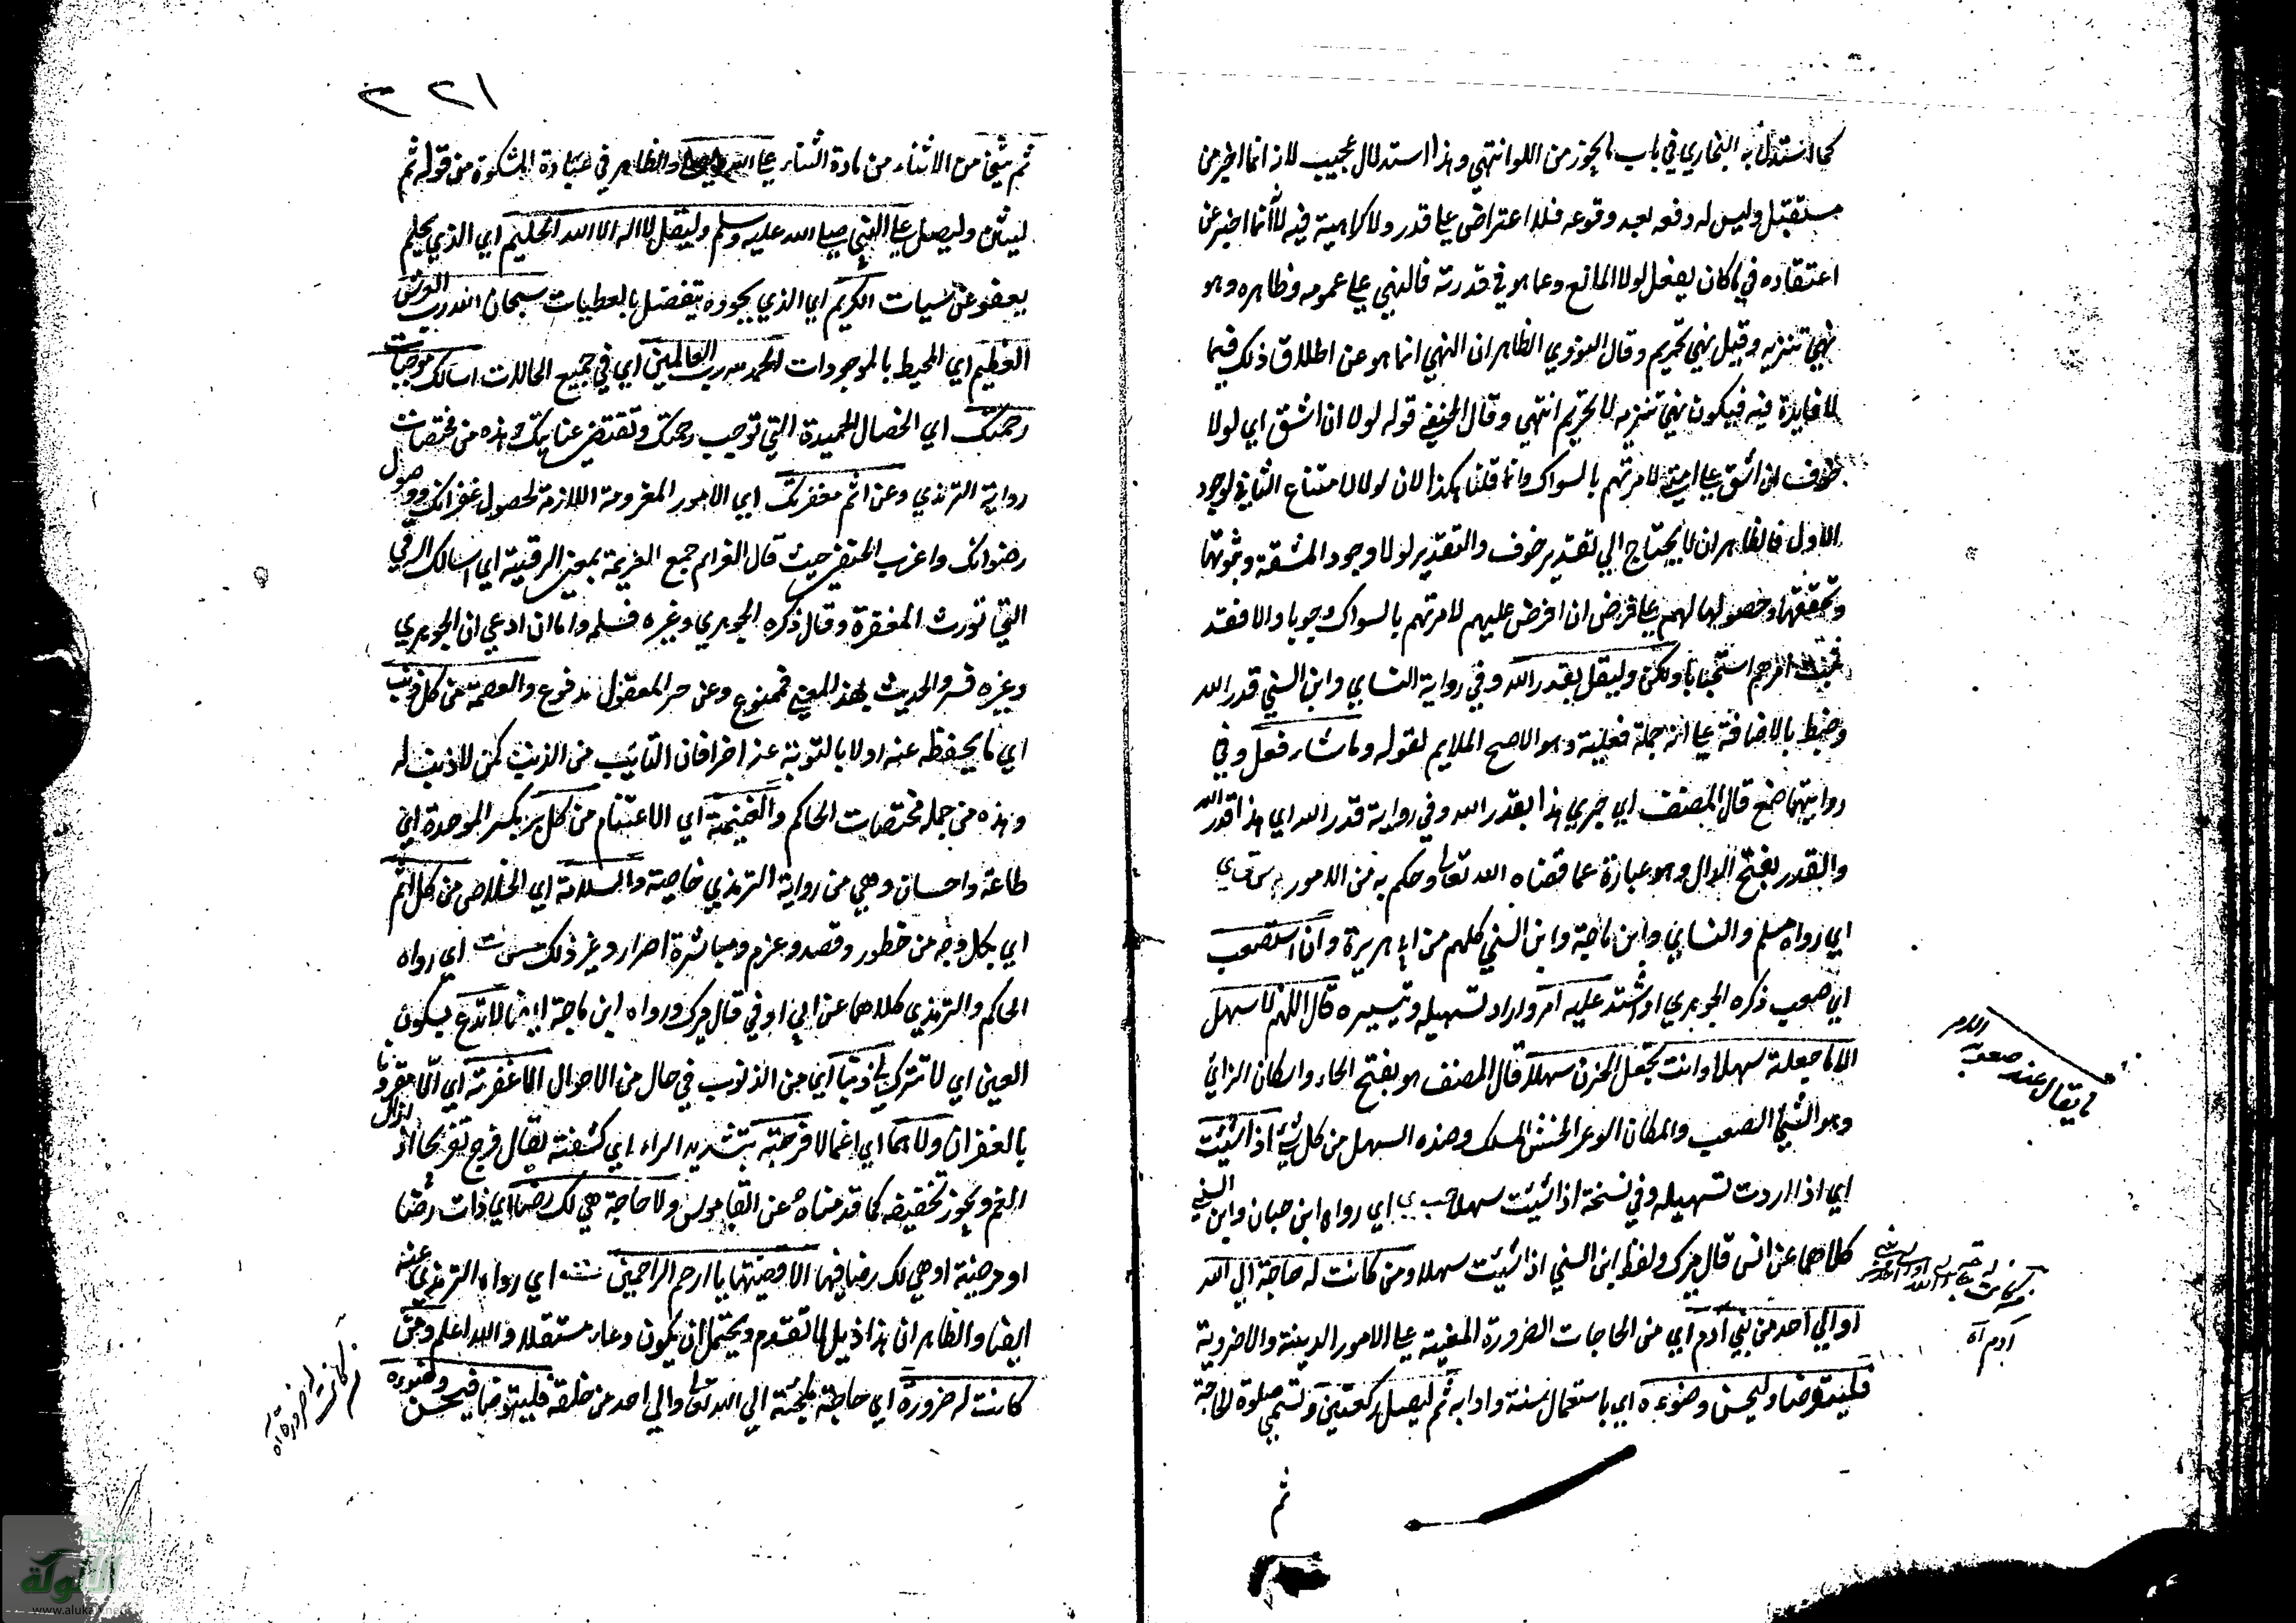 كما استدل به البخاري في باب ما يجوز من اللو انتهي وهذا استدلال عجيب لانه انما اخبر من
مستقبل وليس له دفعه بعد وقوعه فلا اعتراض علي قدر ولا كراهية فيه لانه انما اخبر عن
اعتقاده في ما كان يفعل لولا المانع وعما هو في قدرته فالنهي علي عمومه وظاهره وهو
نهي تنزيه وقيل نهي تحريم وقال النووي الظاهر ان النهي انما هو عن اطلاق ذلك فيما
لا فايدة فيه فيكون نهي تنزيه لا تحريم انتهي وقال الحنفي قوله لولا ان اشق اي لولا
خوف ان اشق علي امتي لامرتهم بالسواك وانما قلنا هكذا لان لولا لامتناع الثاني لوجود
الاول فالظاهر ان لا يحتاج الي تقدير خوف والتقدير لولا وجود المشقة وثبوتها
وتحققها وحصولها لهم علي فرض ان افرض عليهم لامرتهم بالسواك وجوبا والا فقد
ثبت امرهم استحبابا ولكن وليقل بقدر الله وفي رواية النساي وابن السني قدر الله
وضبط بالاضافة علي انه جملة فعلية وهو الاصح الملايم لقوله وما شاء فعل وفي
روايتهما صنع قال المصنف اي جري هذا بقدر الله وفي رواية قدر الله اي هذا قدر الله
والقدر بفتح الدال وهو عبارة عما قضاه الله تعالي وحكم به من الامور م س ق ي
اي رواه مسلم والنساي وابن ماجة وابن السني كلهم من ابي هريرة وان استصعب
اي صعب ذكره الجوهري او اشتد عليه امر واراد تسهيله وتيسيره قال اللهم لا سهل
الا ما جعلته سهلا وانت تجعل الحزن سهلا قال المصنف هو بفتح الحاء واسكان الزاي
وهو الشيء الصعب والمكان الوعر الخشن المسلك وضده السهل من كل شيء اذا شئت
اي اذا اردت تسهيله وفي نسخة اذا شئت سهلا حب ي اي رواه ابن حبان وابن السني
كلاهما عن انس قال ميرك ولفظ ابن السني اذا شئت سهلا ومن كانت له حاجة الي الله
او الي احد من بني آدم اي من الحاجات الضرورة المغنية علي الامور الدينية والاخروية
فليتوضا وليحسن وضوءه اي باستعمال سننه وادابه ثم ليصل ركعتين وتسمي صلوة الحاجة
ثم
ما يقال عند صعوبة
الامر
آدم اه
٣٢١
ثم يثني من الاثناء من مادة الثناء علي الله والظاهر في عبادة المشكوة من قوله ثم
ليثن وليصل علي النبي صلي الله عليه وسلم وليقل لا اله الا الله الحليم اي الذي يحلم
يعفو عن السيات الكريم اي الذي بجوده يتفضل بالعطيات سبحان الله رب العرش
العظيم اي المحيط بالموجودات الحمد لله رب العالمين اي في جميع الحالات اسالك موجبات
رحمتك اي الخصال الحميدة التي توجب رحمتك وتقتضي عنايتك وهذه من مختصات
رواية الترمذي وعزائم مغفرتك اي الامور المعزومة اللازمة لحصول غفرانك ووصول
رضوانك واغرب الحنفي حيث قال العزايم جمع العزيمة بمعني الرقية اي اسالك الرقي
التي تورث المغفرة وقال ذكره الجوهري وغيره فسلم واما ان ادعي ان الجوهري
وغيره فسر والحديث بهذا المعني فممنوع وعن حر المعقول مدفوع والعصمة من كل ذنب
اي ما يحفظ عنه اولا بالتوبة عنه اخرا فان التائب من الذنب كمن لا ذنب له
وهذه من جملة مختصات الحاكم والغنيمة اي الاغتنام من كل بر بكسر الموحدة اي
طاعة واحسان وهي من رواية الترمذي خاصة والسلامة اي الخلاص من كل اثم
اي بكل وجه من خطور وقصد وعزم ومباشرة اصرار وغير ذلك مس ت اي رواه
الحاكم والترمذي كلاهما عن ابن ابي اوفي قال ميرك ورواه ابن ماجة ايضا لا تدع بسكون
العين اي لا تترك لي ذنبا اي من الذنوب في حال من الاحوال الا غفرته اي الا مقرونا
بالغفران ولا هما اي غما الا فرجته بتشديد الراء اي كشفته يقال فرج تفريجا ازال
الغم ويجوز تخفيفه كما قدمناه عن القاموس ولا حاجة هي لك رضا اي ذات رضا
او مرضية او هي لك رضا فيها الا قضيتها يا ارحم الراحمين ت اي رواه الترمذي عنه
ايضا والظاهر ان هذا ذيل لما تقدم ويحتمل ان يكون دعاء مستقلا والله اعلم ومن
كانت له ضرورة اي حاجة ملجئة الي الله تعالي والي احد من خلقه فليتوضا فيحسن وضوءه
من كانت له ضرورة اه
شبكة
الألوكة
www.alukah.net